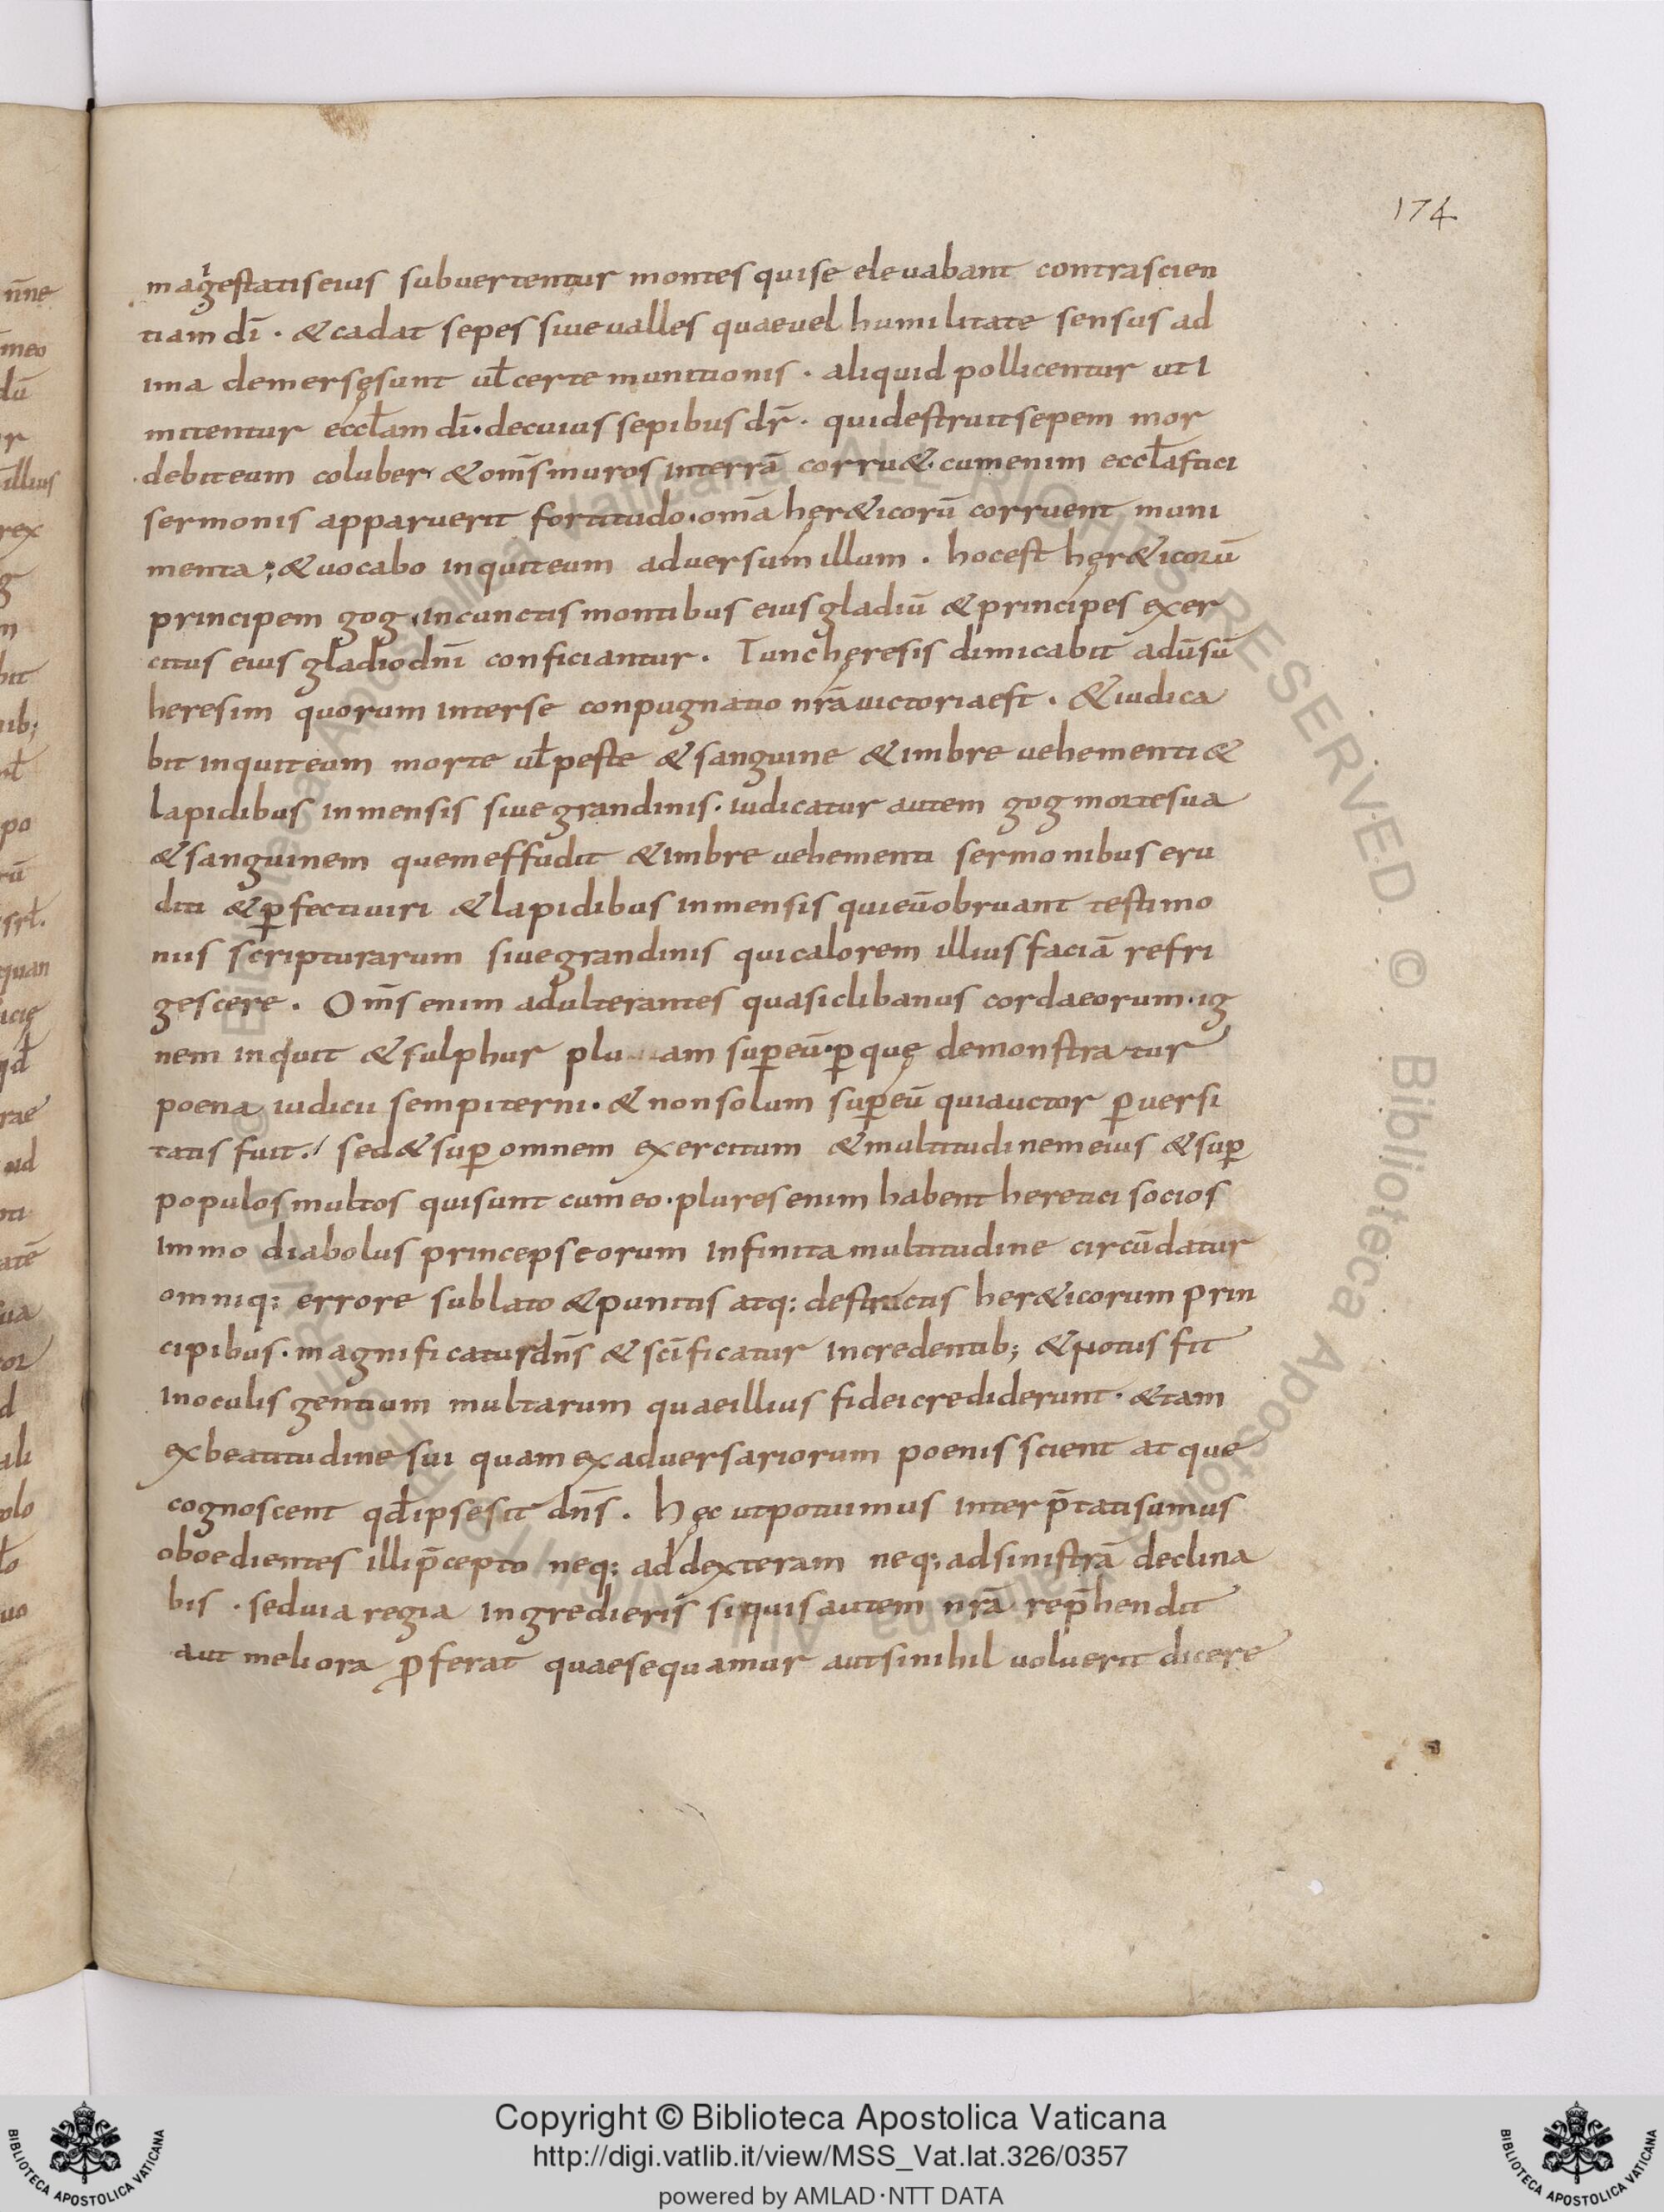 174
magestatis eius subvertentur montes qui se elevabant contra scien
tiam dī · & cadat sepes sive valles quae vel humilitate sensus ad
ima demersę sunt uł certe munitionis · aliquid pollicentur ut i
mitentur eccłam dī · de cuius sepibus dr̄ · qui destruit sepem mor
debit eum coluber · & om̄s muros in terrā corru& · cum enim eccłastici
sermonis apparuerit fortitudo · omā her&icorū corruent muni
menta ; & vocabo inquit eum adversum illum · hoc est hęr&icorū
principem gog in cunctis montibus eius gladiū & principes exer
citus eius gladio dn̄i conficiantur · Tunc hęresis dimicabit adū̄sū
heresim quorum inter se conpugnatio nr̄a victoria est · & iudica
bit inquit eum morte uł peste & sanguine & imbre vehementi &
lapidibus inmensis sive grandinis · iudicatur autem gog morte sua
& sanguinem quem effudit & imbre vehementi sermonibus eru
diti & ꝑfecti viri & lapidibus inmensis qui eū obruant testimo
niis scripturarum sive grandinis qui calorem illius faciā refri
gescere · Om̄s enim adulterantes quasi clibanus corda eorum · ig
nem inquit & sulphur plu am suꝑ eū · ꝑ quę demonstratur
poena iudicii sempiterni · & non solum suꝑ eū qui auctor ꝑversi
tatis fuit · sed & suꝑ omnem exercitum & multitudinem eius & suꝑ
populos multos qui sunt cum eo · plures enim habent heretici socios
immo diabolus princeps eorum infinita multitudine circūdatur
omniq; errore sublato & punitis atq; destructis her&icorum prin
cipibus · magnificatur dn̄s & sc̄ificatur in credentib; & notus fit
in oculis gentium multarum quae illius fidei crediderunt · & tam
ex beatitudine sui quam ex adversariorum poenis scient atque
cognoscent qđ ipse sit dn̄s · Hęc ut potuimus interp̄tati sumus
oboedientes illi p̄cepto neq; ad dexteram neq; ad sinistrā declina
bis · sed via regia ingredieris si quis autem nr̄a rep̄hendit
aut meliora ꝓferat quae sequamur aut si nihil voluerit dicere
Copyright © Biblioteca Apostolica Vaticana
http://digi.vatlib.it/view/MSS_Vat.lat.326/0357
powered by AMLAD·NTT DATA
BIBLIOTECA APOSTOLICA VATICANA
BIBLIOTECA APOSTOLICA VATICANA